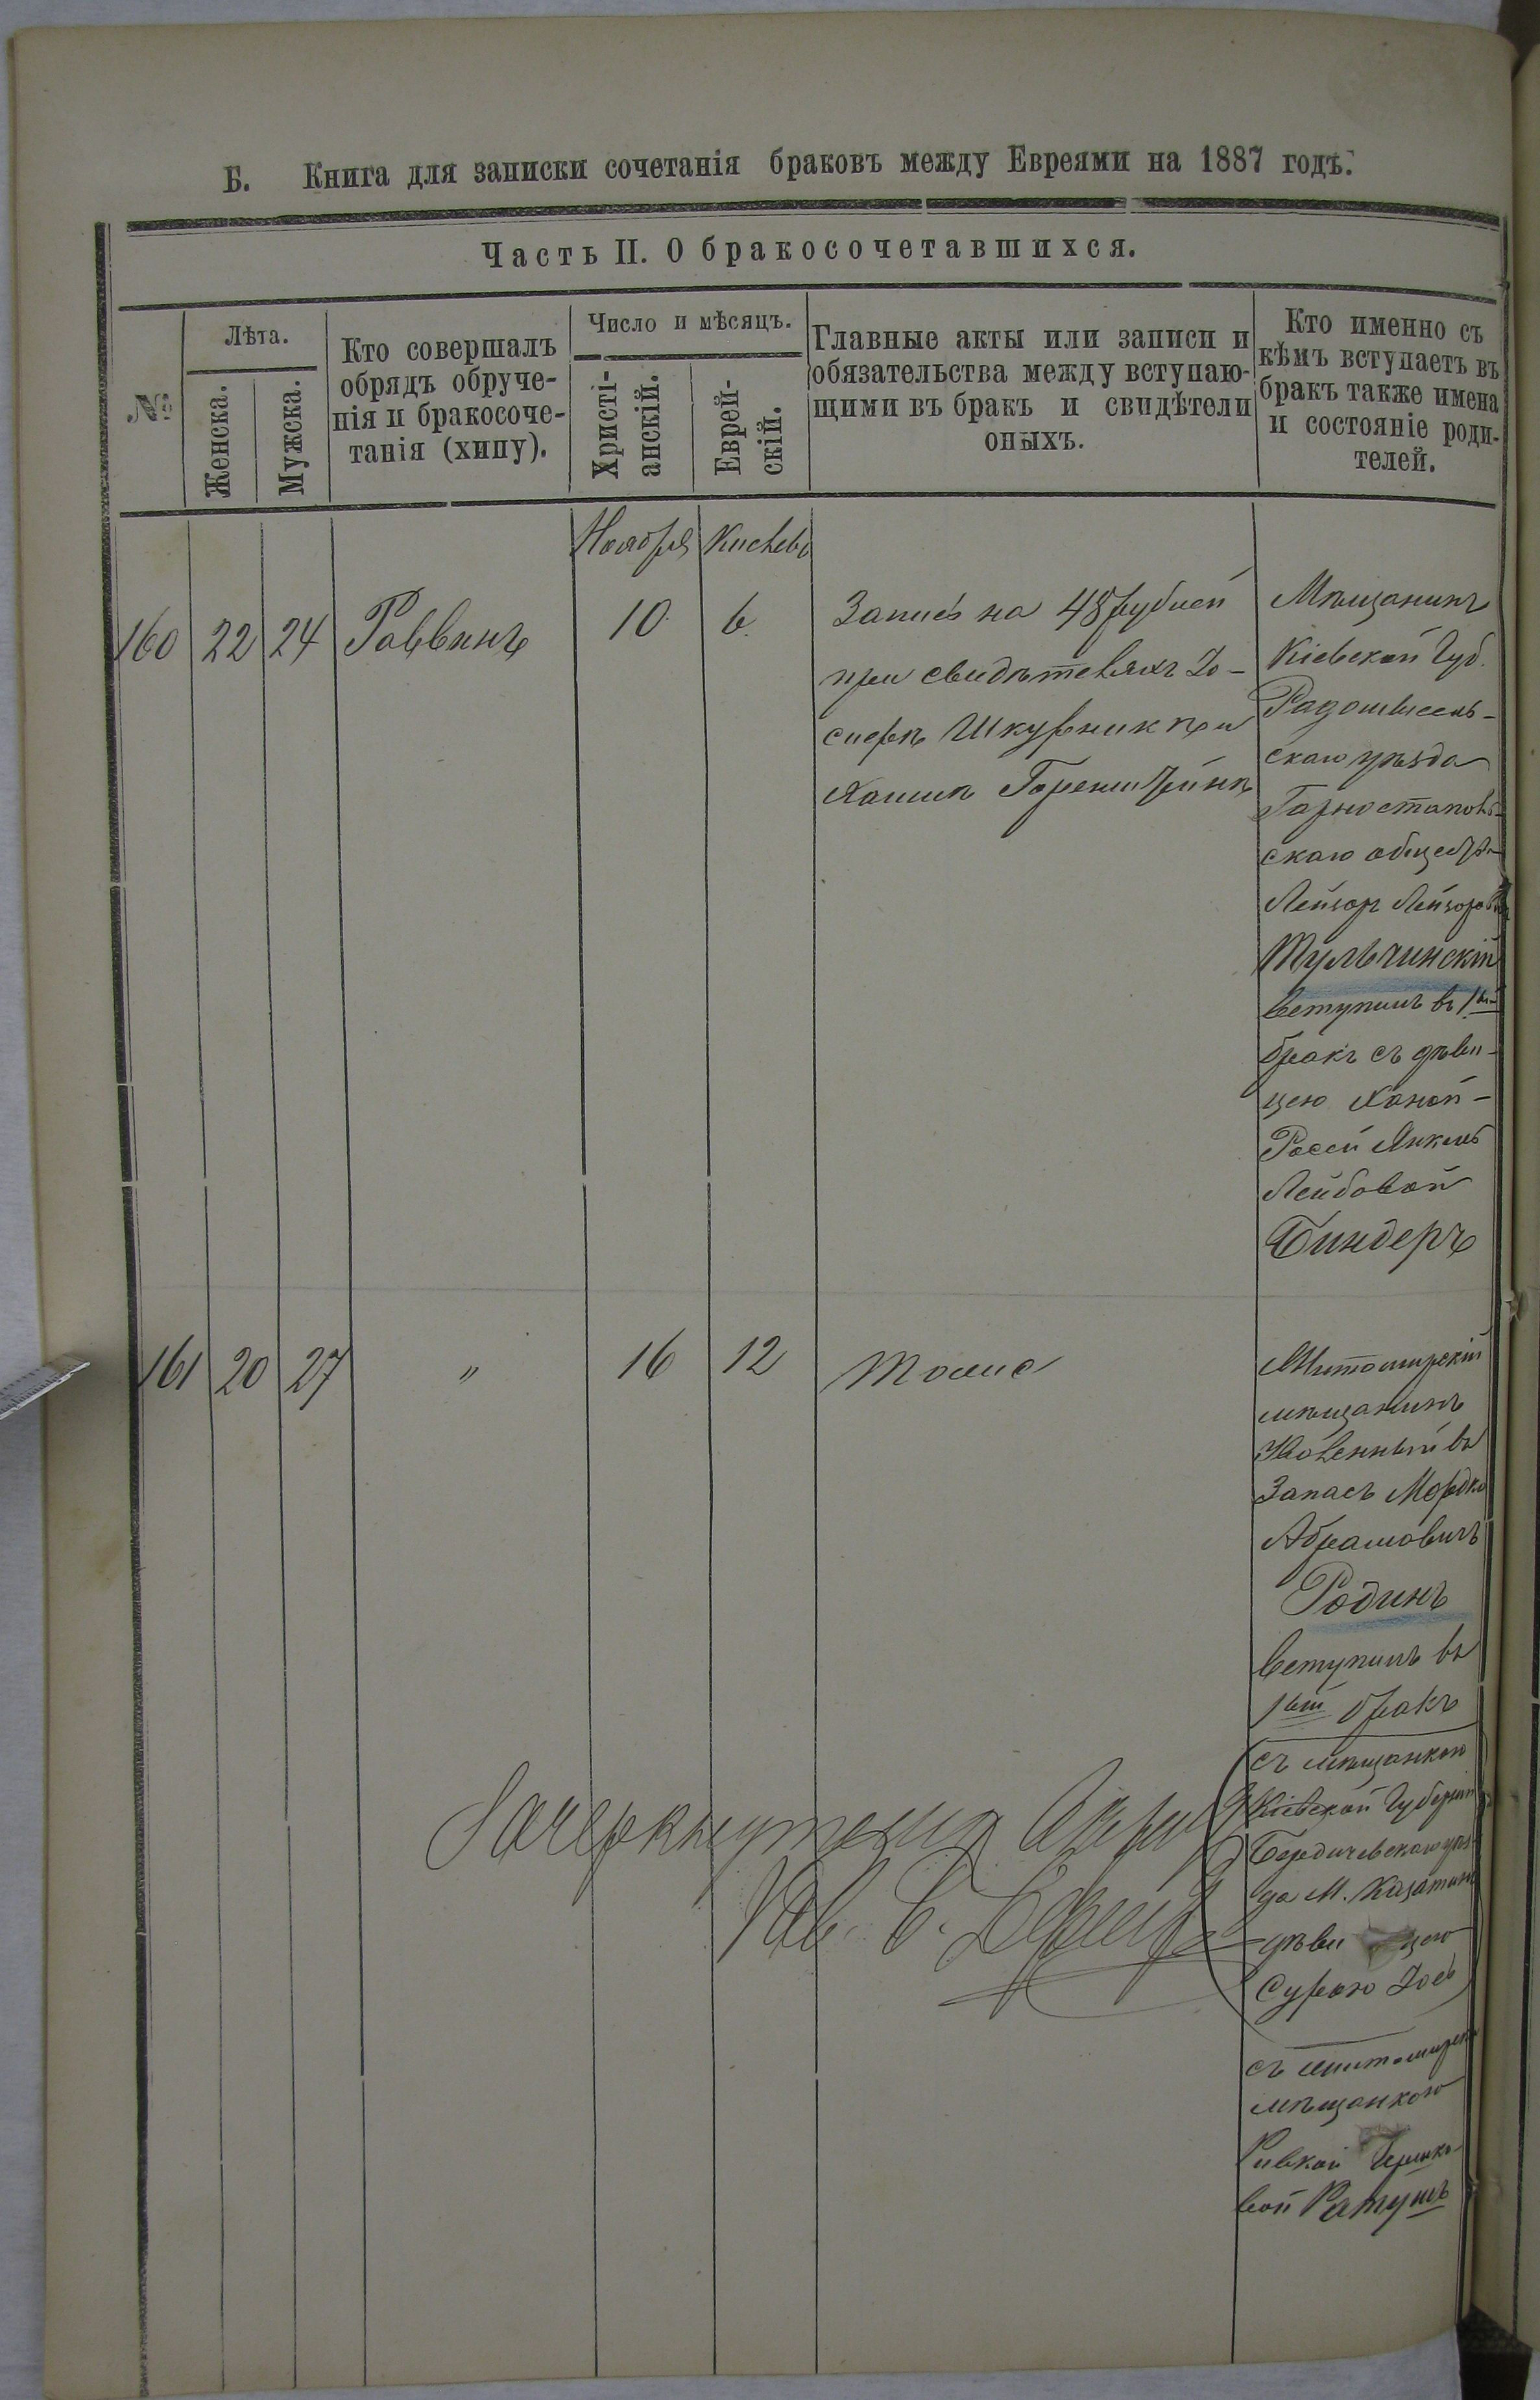 Б. Книга для записки сочетанія браковъ между Евреями на 1887 годъ.
Часть II. О бракосочетавшихся.
№
Лѣта.
Женска.
Мужска.
Кто совершалъ
обрядъ обруче-
нія и бракосоче-
танія (хипу).
Число и мѣсяцъ.
Христі-
анскій.
Еврей-
скій.
Главные акты или записи и
обязательства между вступаю-
щими въ бракъ и свидѣтели
оныхъ.
Кто именно съ
кѣмъ вступаетъ въ
бракъ также имена
и состояніе роди-
телей.
Ноября Кислевъ
160 22 24 Раввинъ 10 6
Запись на 48 рублей
при свидѣтеляхъ Іо-
сифѣ Шкурникѣ и
Хаимѣ Горенштейнѣ
Мѣщанинъ
Кіевской Губ.
Радомысль-
скаго уѣзда
Горностайполь-
скаго общества
Лейзоръ Лейзоровъ
Тульчинскій
вступилъ въ 1ый
бракъ съ дѣви-
цею Ханой-
Россей Янкель
Лейбовой
Биндеръ
161 20 27 " 16 12 тоже
Житомирскій
мѣщанинъ
уволенный въ
Запасъ Мордко
Абрамовичъ
Родинъ
вступилъ въ
1ый бракъ
съ мѣщанкою
Кіевской Губерніи
Бердичевскаго уѣз-
да М. Казатина
дѣви цею
Сурою Іос
Рав. Б.
съ житомирск
мѣщанкою
Ривкой Гершко-
вой Ратушъ